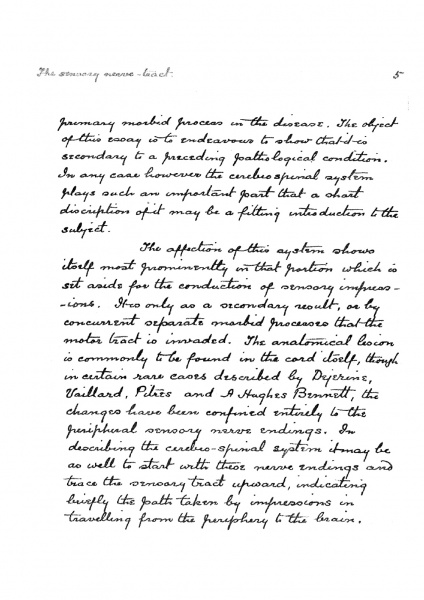 The sensory nerve-tract. 5
primary morbid process in the disease. The object
of this essay is to endeavour to show that it is
secondary to a preceding pathological condition.
In any case however the cerebro spinal system
plays such an important part that a short
discription of it may be a fitting introduction to the
subject.
The affection of this system shows
itself most prominently in that portion which is
set aside for the conduction of sensory impress-
-ions. It is only as a secondary result, or by
concurrent separate morbid processes that the
motor tract is invaded. The anatomical lesion
is commonly to be found in the cord itself, though
in certain rare cases described by Dejerine,
Vaillard, Pitres and A Hughes Bennett, the
changes have been confined entirely to the
peripheral sensory nerve endings. In
describing the cerebro-spinal system it may be
as well to start with these nerve endings and
trace the sensory tract upward, indicating
briefly the path taken by impressions in
travelling from the periphery to the brain.